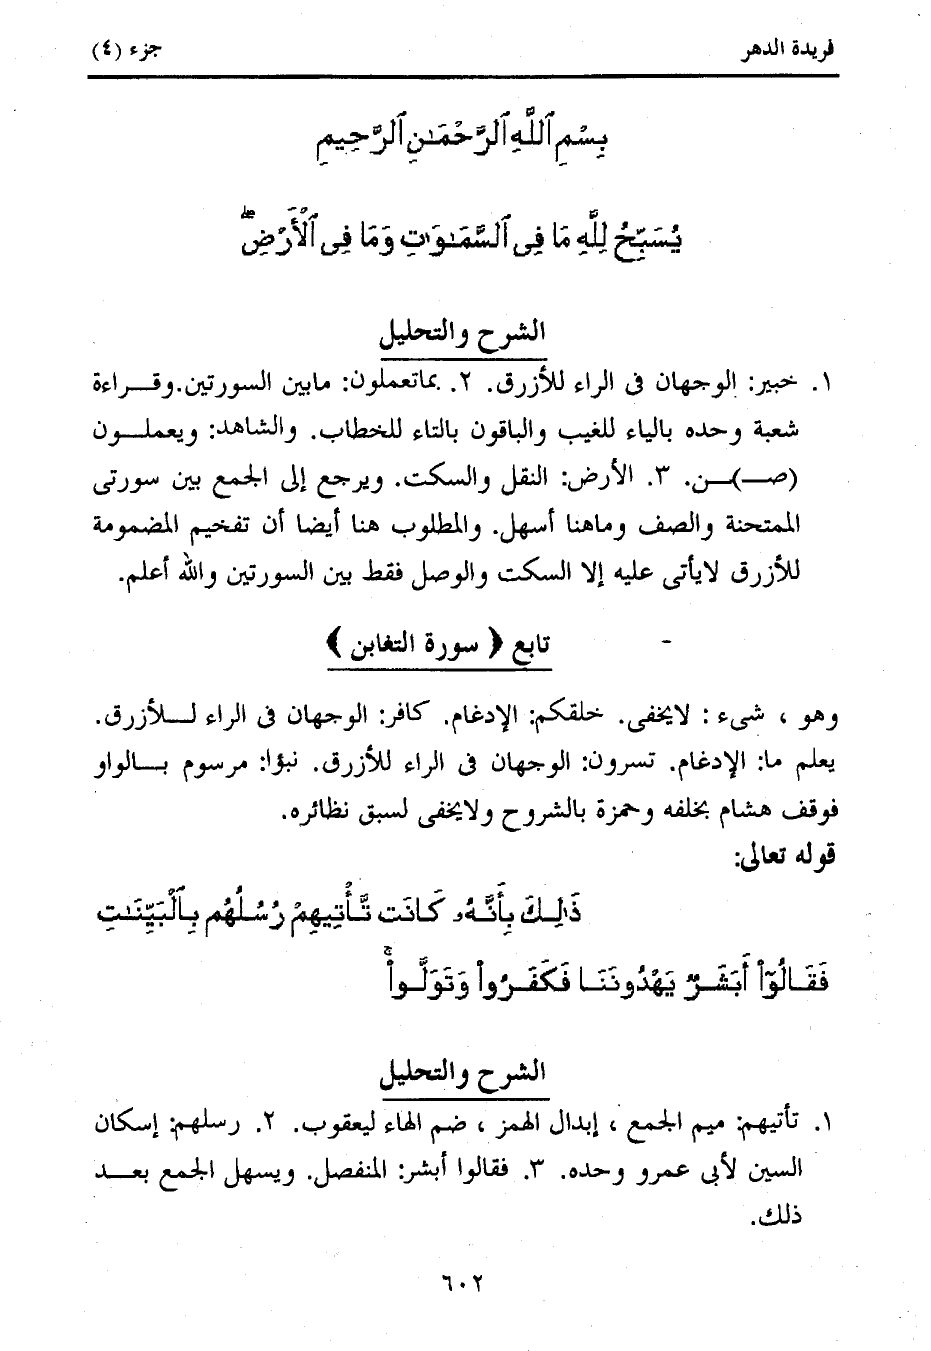 فريدة الدهر
جزء (٤)
بِسْمِ ٱللَّهِ ٱلرَّحْمَـٰنِ ٱلرَّحِيمِ
يُسَبِّحُ لِلَّهِ مَا فِى ٱلسَّمَـٰوَٰتِ وَمَا فِى ٱلْأَرْضِ ۖ
الشرح والتحليل
١. خبير: الوجهان فى الراء للأزرق. ٢. بماتعملون: مابين السورتين.وقـــراءة
شعبة وحده بالياء للغيب والباقون بالتاء للخطاب. والشاهد: ويعملــون
(صــ)ــن. ٣. الأرض: النقل والسكت. ويرجع إلى الجمع بين سورتى
الممتحنة والصف وماهنا أسهل. والمطلوب هنا أيضا أن تفخيم المضمومة
للأزرق لايأتى عليه إلا السكت والوصل فقط بين السورتين والله أعلم.
تابع ﴿ سورة التغابن ﴾
وهو ، شىء : لايخفى. خلقكم: الإدغام. كافر: الوجهان فى الراء لــلأزرق.
يعلم ما: الإدغام. تسرون: الوجهان فى الراء للأزرق. نبؤا: مرسوم بــالواو
فوقف هشام بخلفه وحمزة بالشروح ولايخفى لسبق نظائره.
قوله تعالى:
ذَٰلِكَ بِأَنَّهُۥ كَانَت تَّأْتِيهِمْ رُسُلُهُم بِٱلْبَيِّنَـٰتِ
فَقَالُوٓا۟ أَبَشَرٌ يَهْدُونَنَا فَكَفَرُوا۟ وَتَوَلَّوا۟ ۚ
الشرح والتحليل
١. تأتيهم: ميم الجمع ، إبدال الهمز ، ضم الهاء ليعقوب. ٢. رسلهم: إسكان
السين لأبى عمرو وحده. ٣. فقالوا أبشر: المنفصل. ويسهل الجمع بعــد
ذلك.
٦٠٢